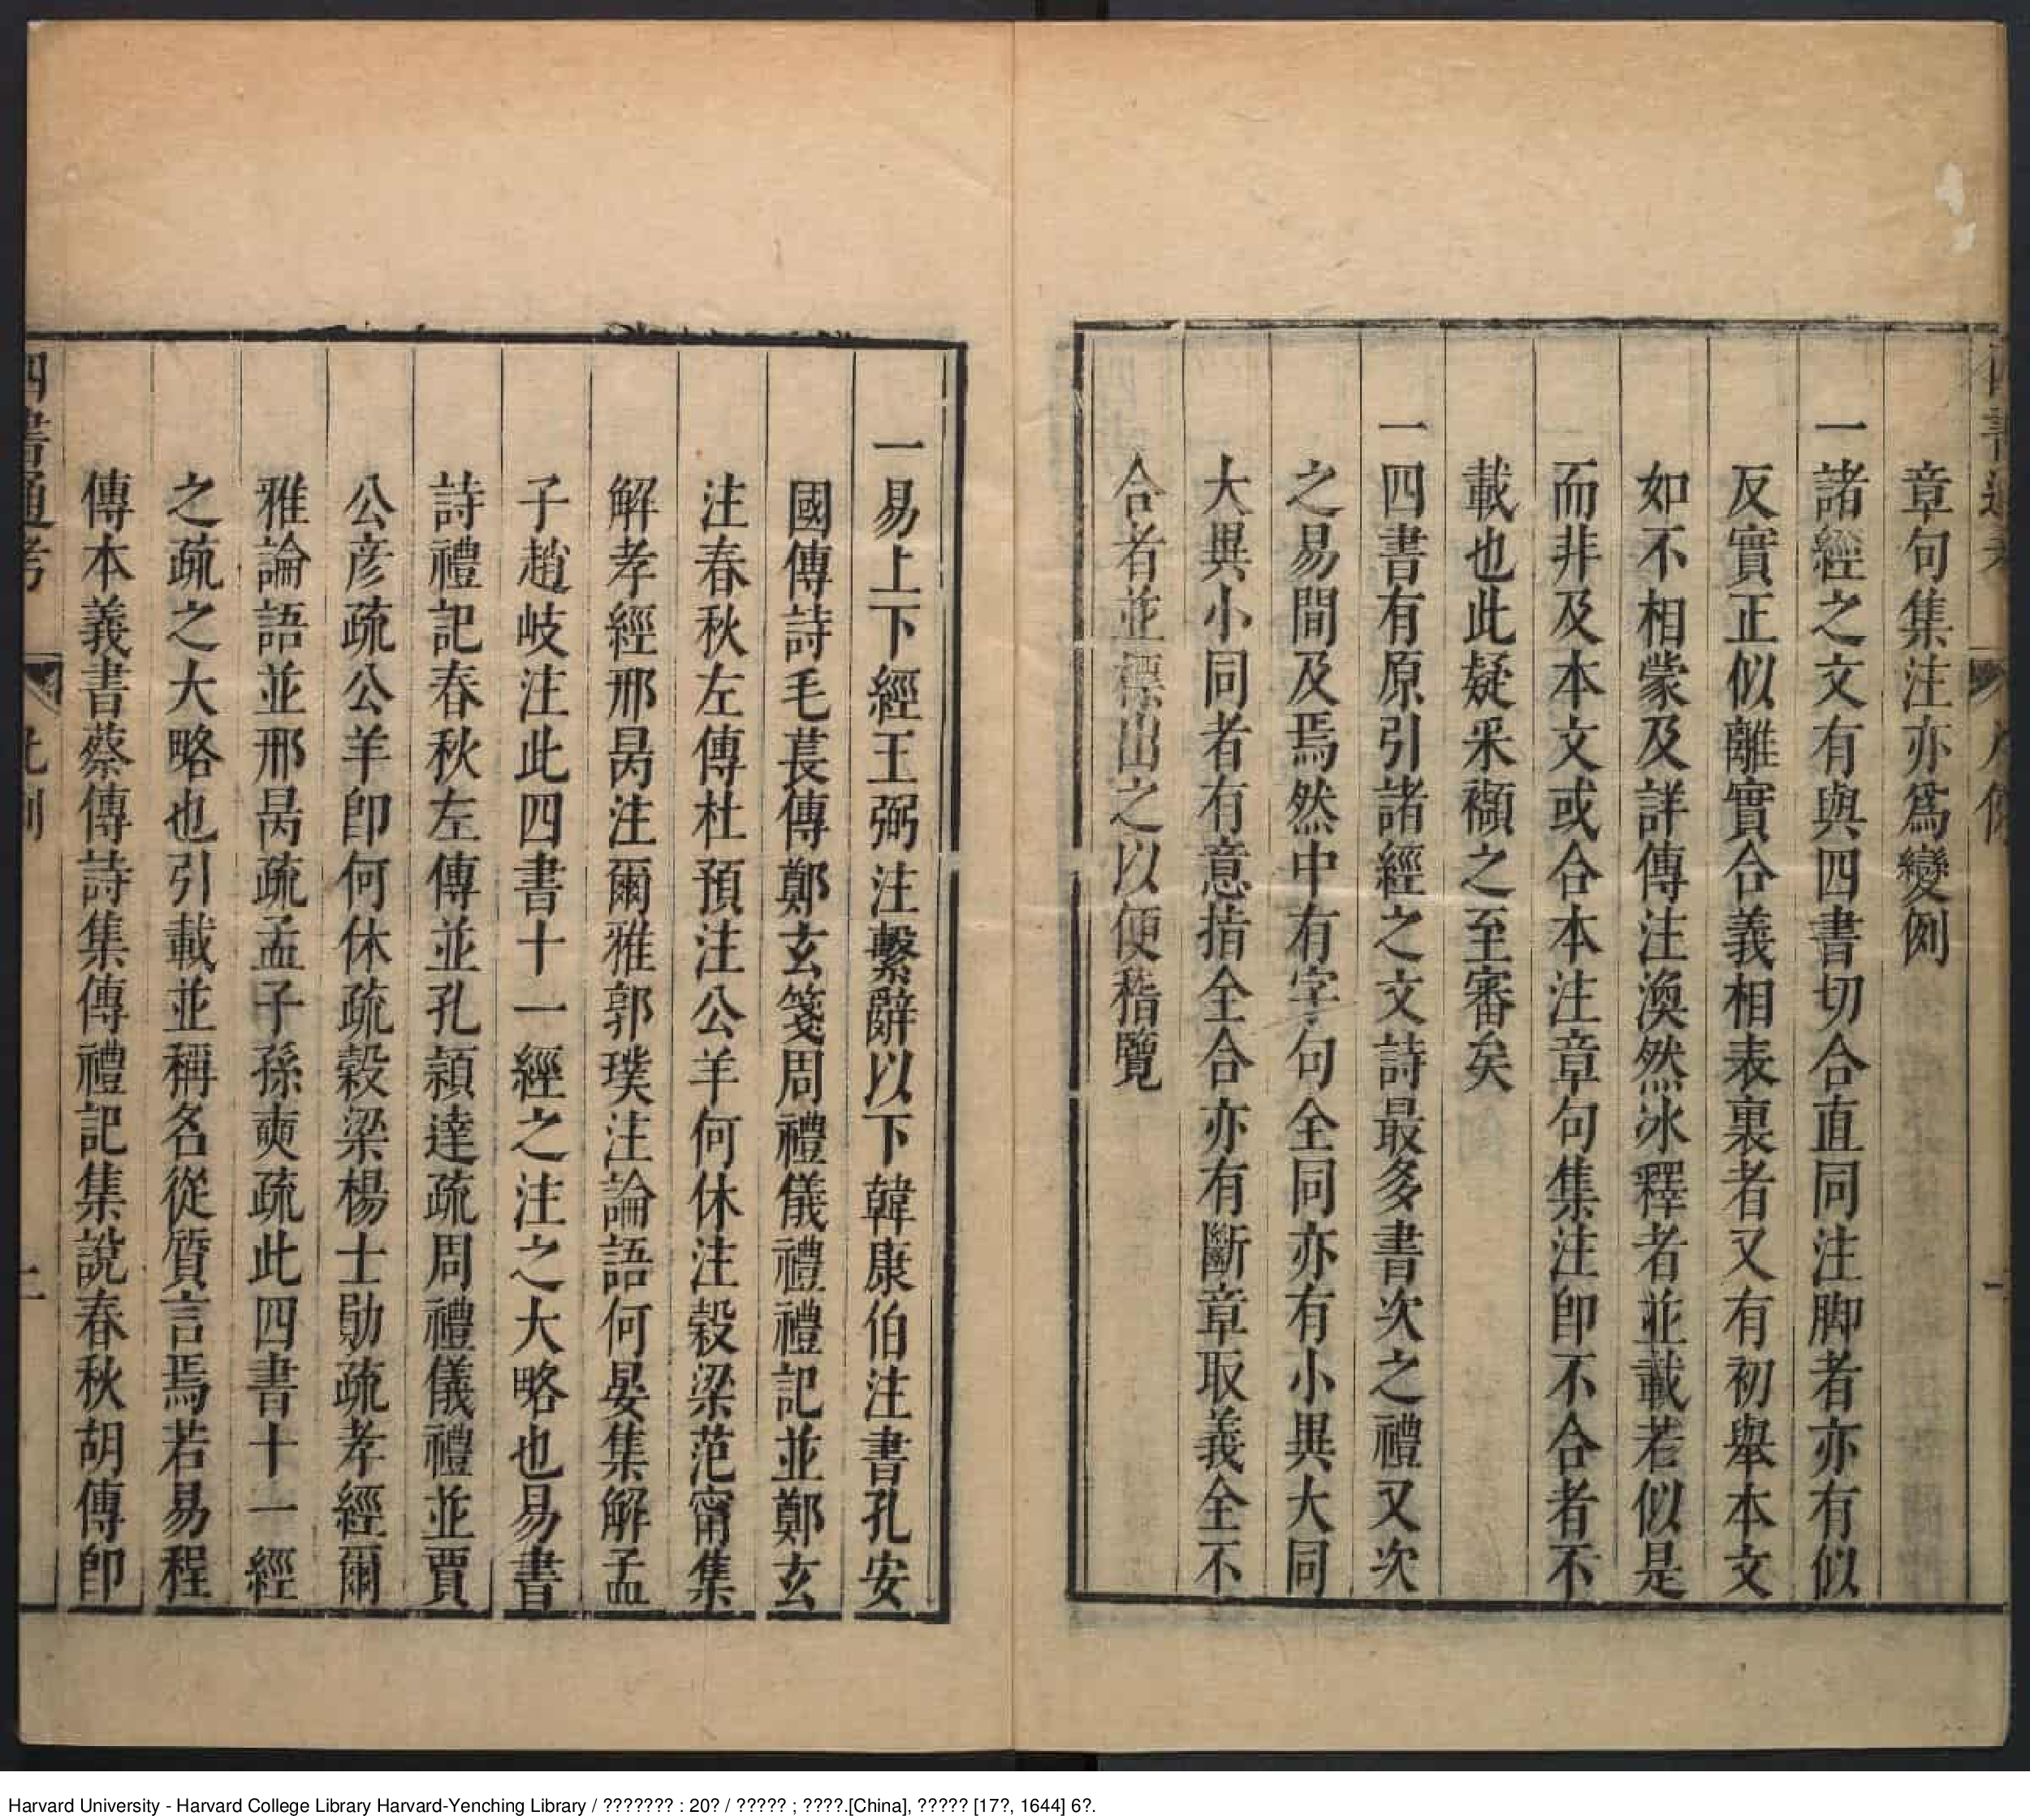 章句集注亦爲變例
一諸經之文有與四書切合直同注脚者亦有似
反實正似離實合義相表裏者又有初舉本文
如不相蒙及詳傳注渙然冰釋者並載若似是
而非及本文或合本注章句集注卽不合者不
載也此疑釆纈之至審矣
一四書有原引諸經之文詩最多書次之禮又次
之易間及焉然中有字句全同亦有小異大同
大異小同者有意指全合亦有斷章取義全不
合者並標出之以便稽覽
一易上下經王弼注繫辭以下韓康伯注書孔安
國傳詩毛萇傳鄭玄箋周禮儀禮禮記並鄭玄
注春秋左傳杜預注公羊何休注穀梁范甯集
解孝經邢昺注爾雅郭璞注論語何晏集解孟
子趙岐注此四書十一經之注之大略也易書
詩禮記春秋左傳並孔穎達疏周禮儀禮並賈
公彥疏公羊卽何休疏穀梁楊士勛疏孝經爾
雅論語並邢昺疏孟子孫奭疏此四書十一經
之疏之大略也引載並稱名從質言焉若易程
傳本義書蔡傳詩集傳禮記集說春秋胡傳卽
四書通考
凡例
二
Harvard University - Harvard College Library Harvard-Yenching Library / ??????? : 20? / ????? ; ????.[China], ????? [17?, 1644] 6?.